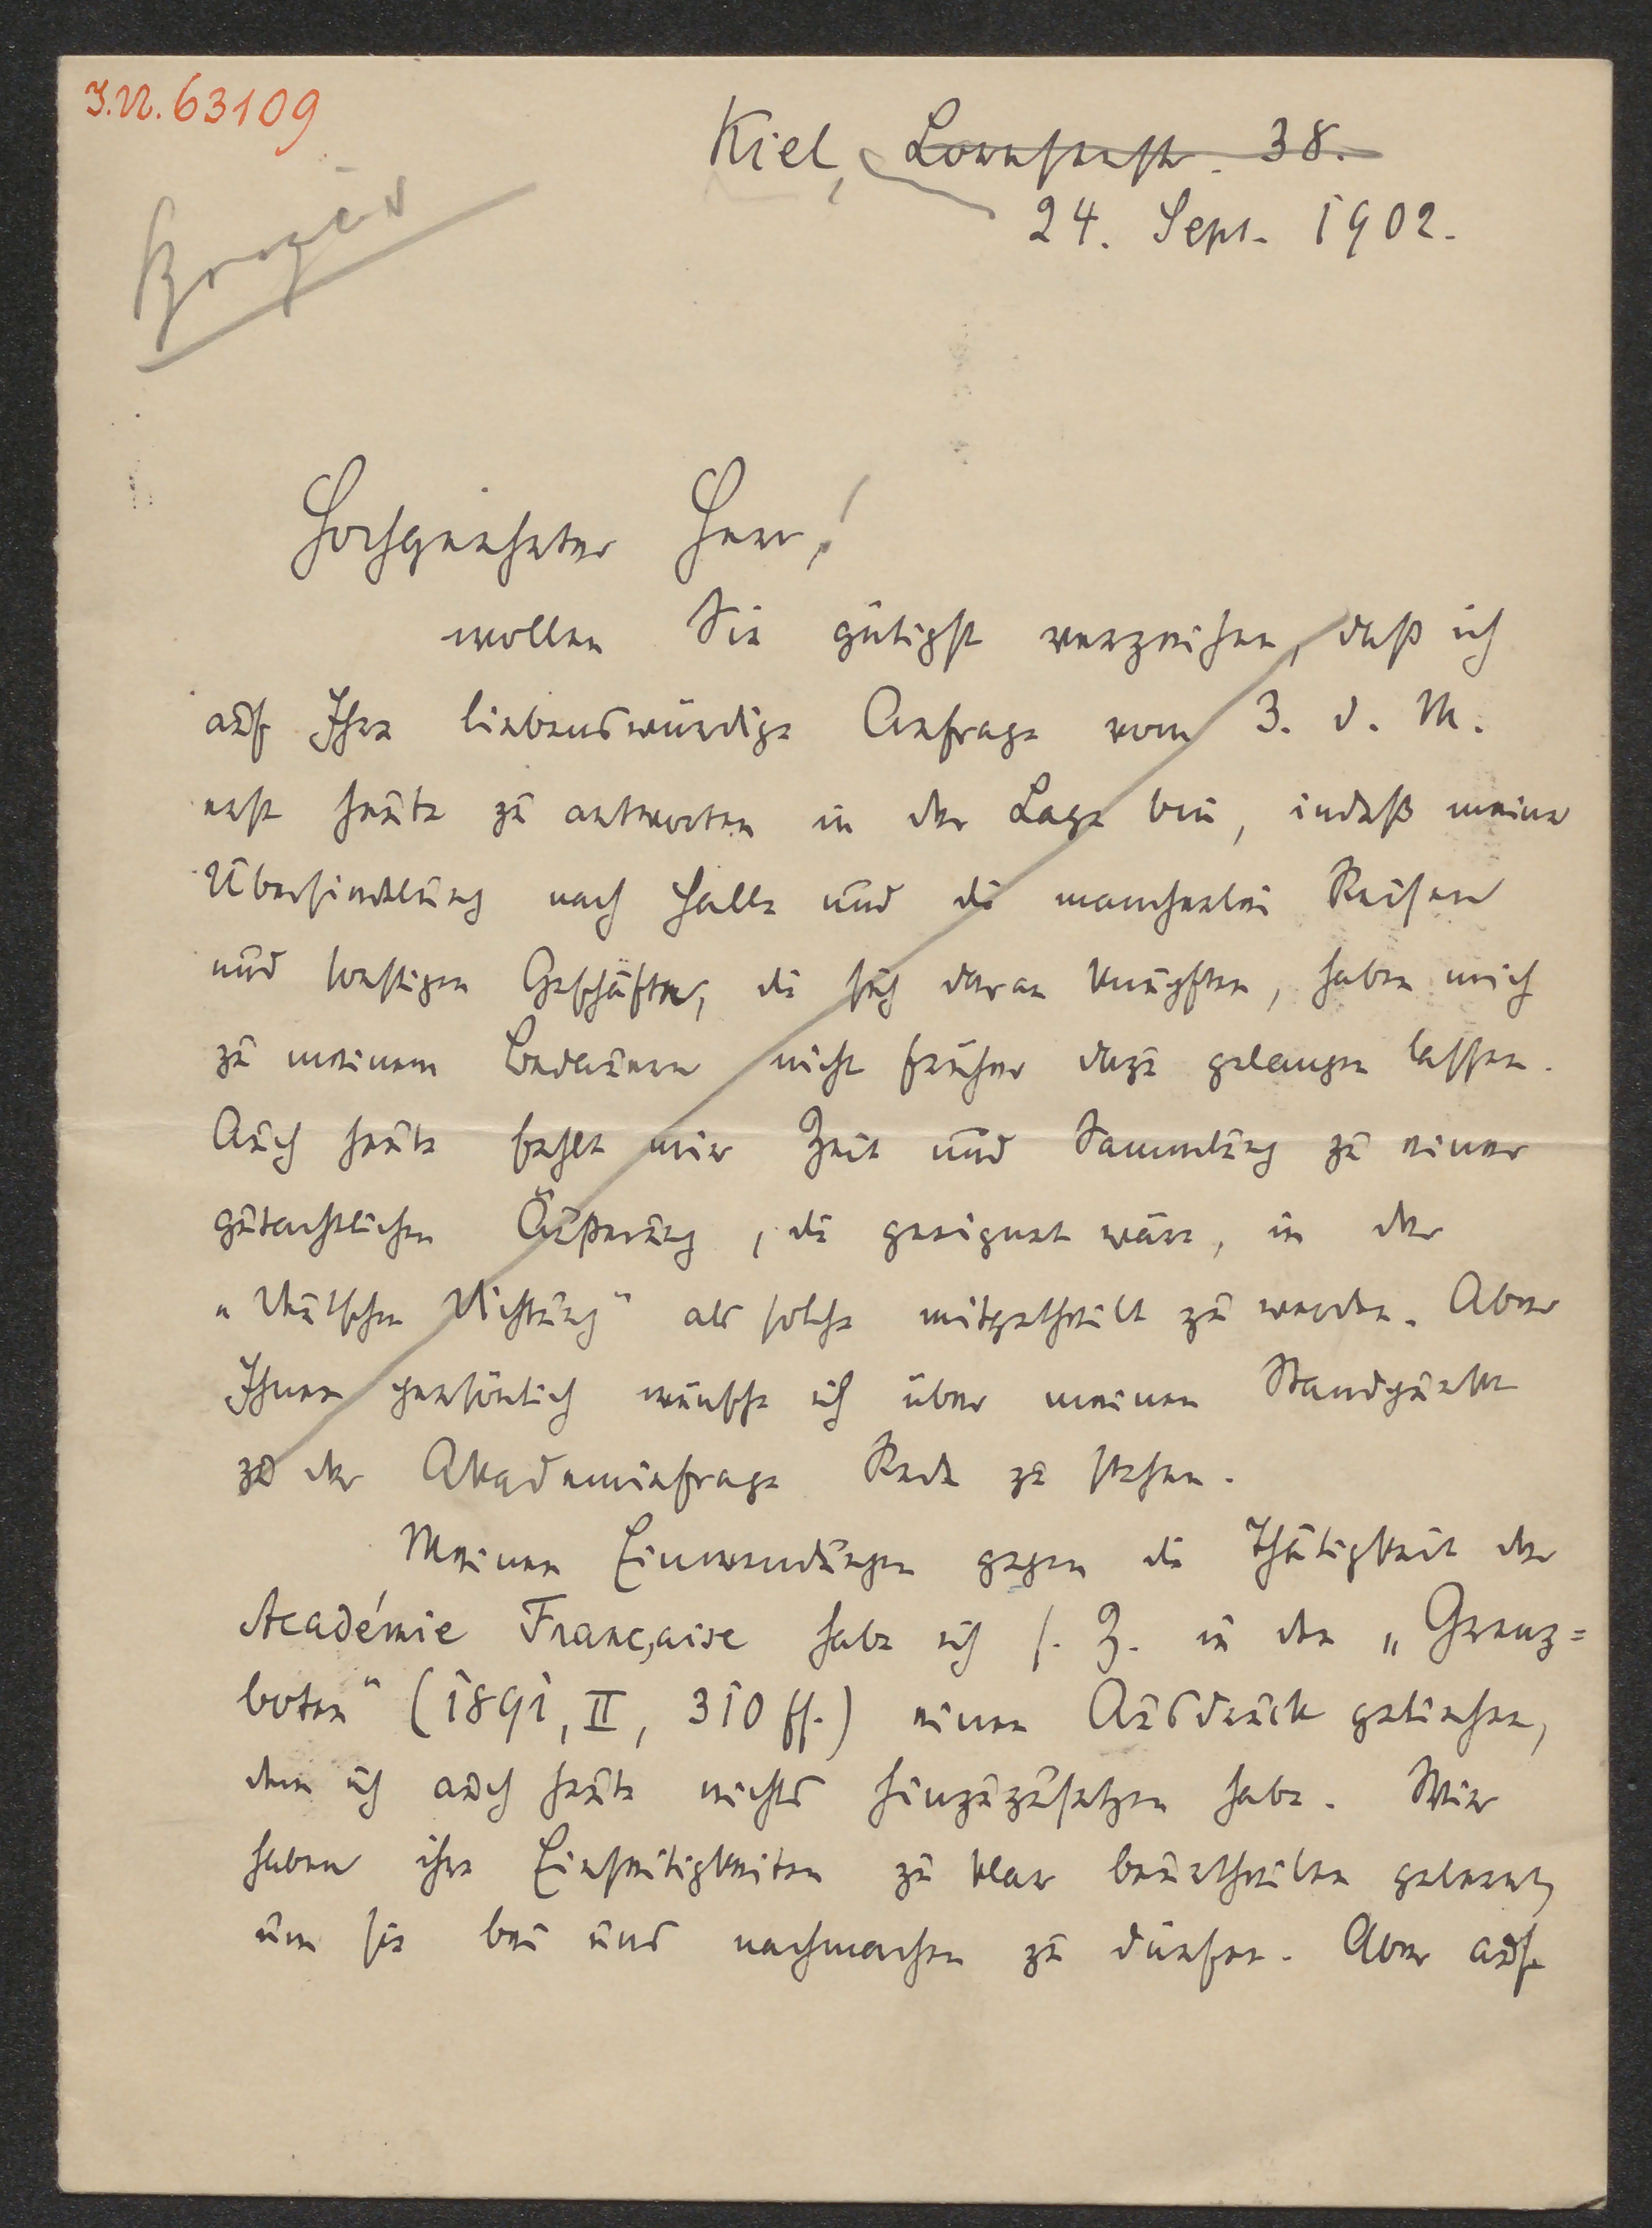 I.N. 63109
Kiel, Lornsenstr. 38.
24. Sept. 1902.
Hochgeehrter Herr!
wollen Sie gütigst verzeihen, daß ich
auf Ihre liebenswürdige Anfrage vom 3. d. M.
erst heute zu antworten in der Lage bin, indeß meine
Übersiedelung nach Halle und die mancherlei Reisen
und sonstigen Geschäfte, die sich daran knüpften, haben mich
zu meinem Bedauern nicht früher dazu gelangen lassen.
Auch heute fehlt mir Zeit und Sammlung zu einer
gutachtlichen Äußerung, die geeignet wäre, in der
„Deutschen Dichtung" als solche mitgetheilt zu werden. Aber
Ihnen persönlich wünsche ich über meinen Standpunkt
zu der Akademiefrage Rede zu stehen.
Meinen Einwendungen gegen die Thätigkeit der
Académie Française habe ich s. Z. in den „Grenz=
boten" (1891, II, 310 ff.) einen Ausdruck geliehen,
dem ich auch heute nichts hinzuzusetzen habe. Wir
haben ihre Einseitigkeiten zu klar beurtheilen gelernt,
um sie bei uns nachmachen zu dürfen. Aber auf